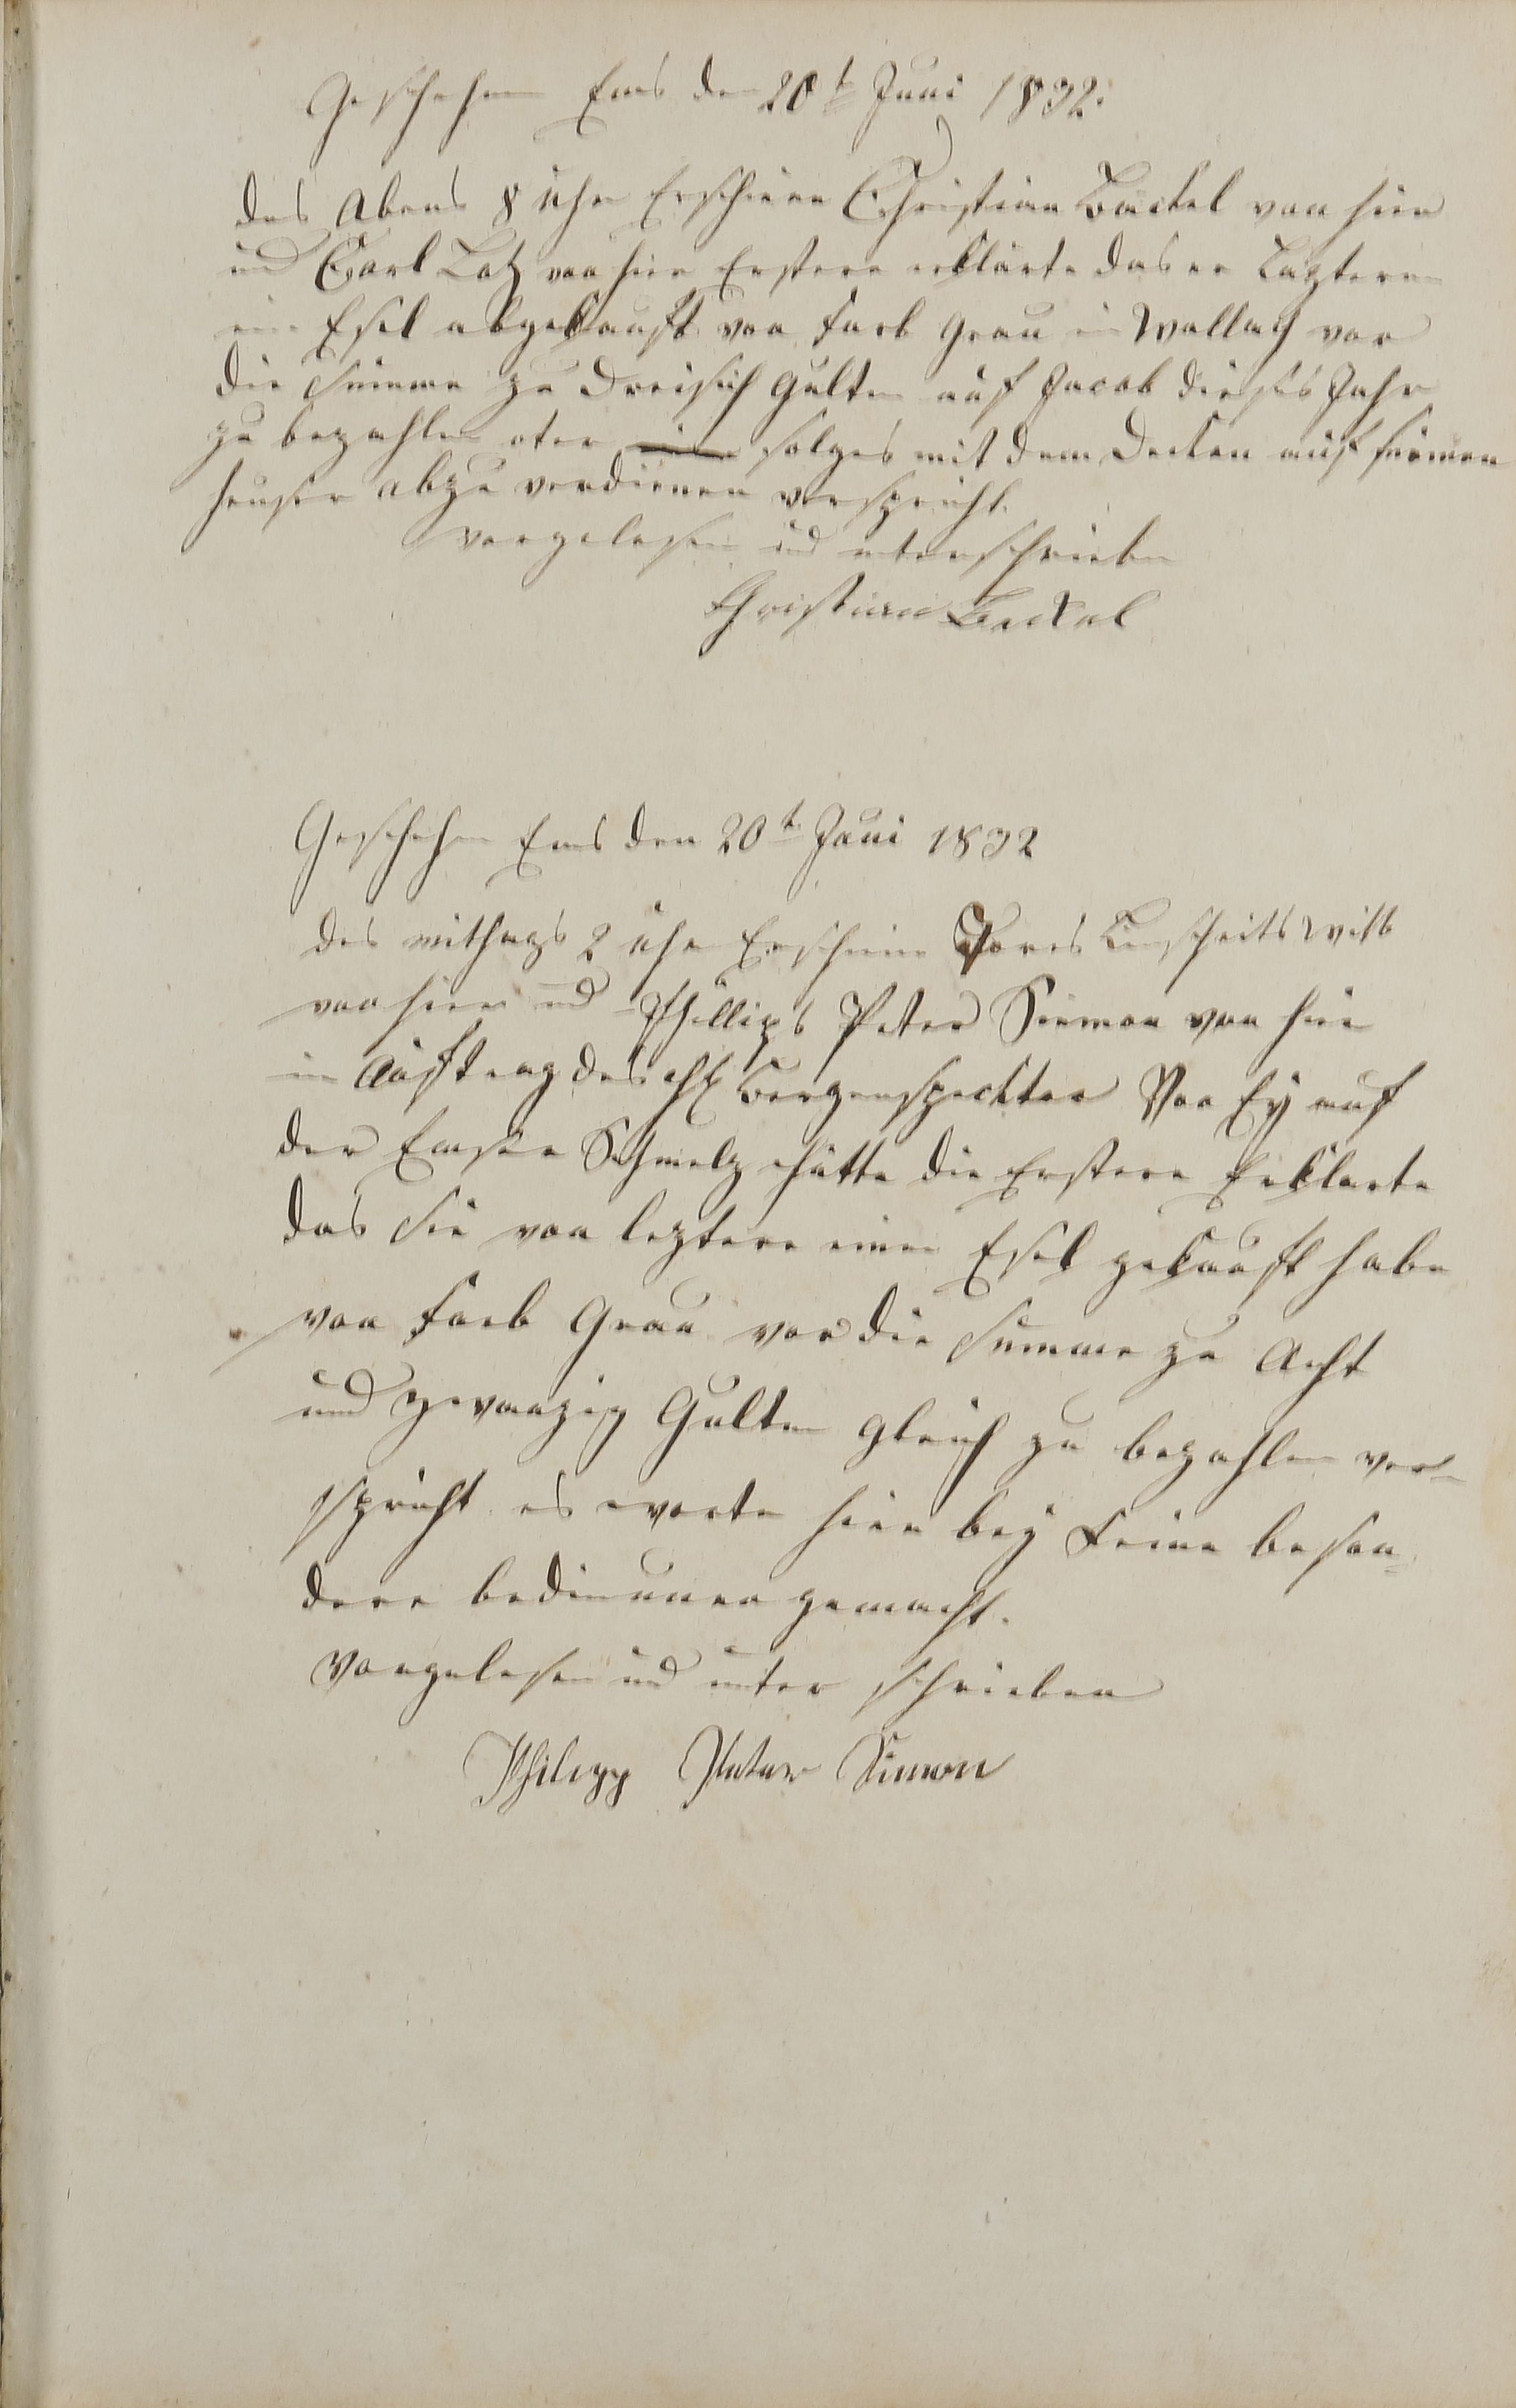 Geschehen Ems den 20t Juni 1832.
des Abens 8 uhr Erschinn Christian Backel von hier
und Carl Lotz von hier Erstere erklärte das er Lezteren
ein Esel abgekauft von farb grau in Wallag vor
die Summe zu Dreisich Gulten auf Jacob dieses Jahr
zu bezahlen oter solges mit dem Decken auf seimen
heuser abzu verdienen verspricht.
vorgelesen und unterschrieben
Christian Backel
Geschehen Ems den 20t Juni 1832
des mithags 2 uhr Erschinn Witb
von hier und Phillips Peter Siemon von hier
in Auftrag des H Bergenspecktor Von Ey auf
der Emser Schmelz hütte die Erstere Erklarte
das sie von leztere einen Esel gekauft habe
von farb Grau vor die summe zu Acht
und zwanzig Gulten gleich zu bezahlen ver-
spricht es worte hier bey keine beson-
dere bedinunen gemacht.
Vorgelesen und unter schrieben
Philipp Peter Simon